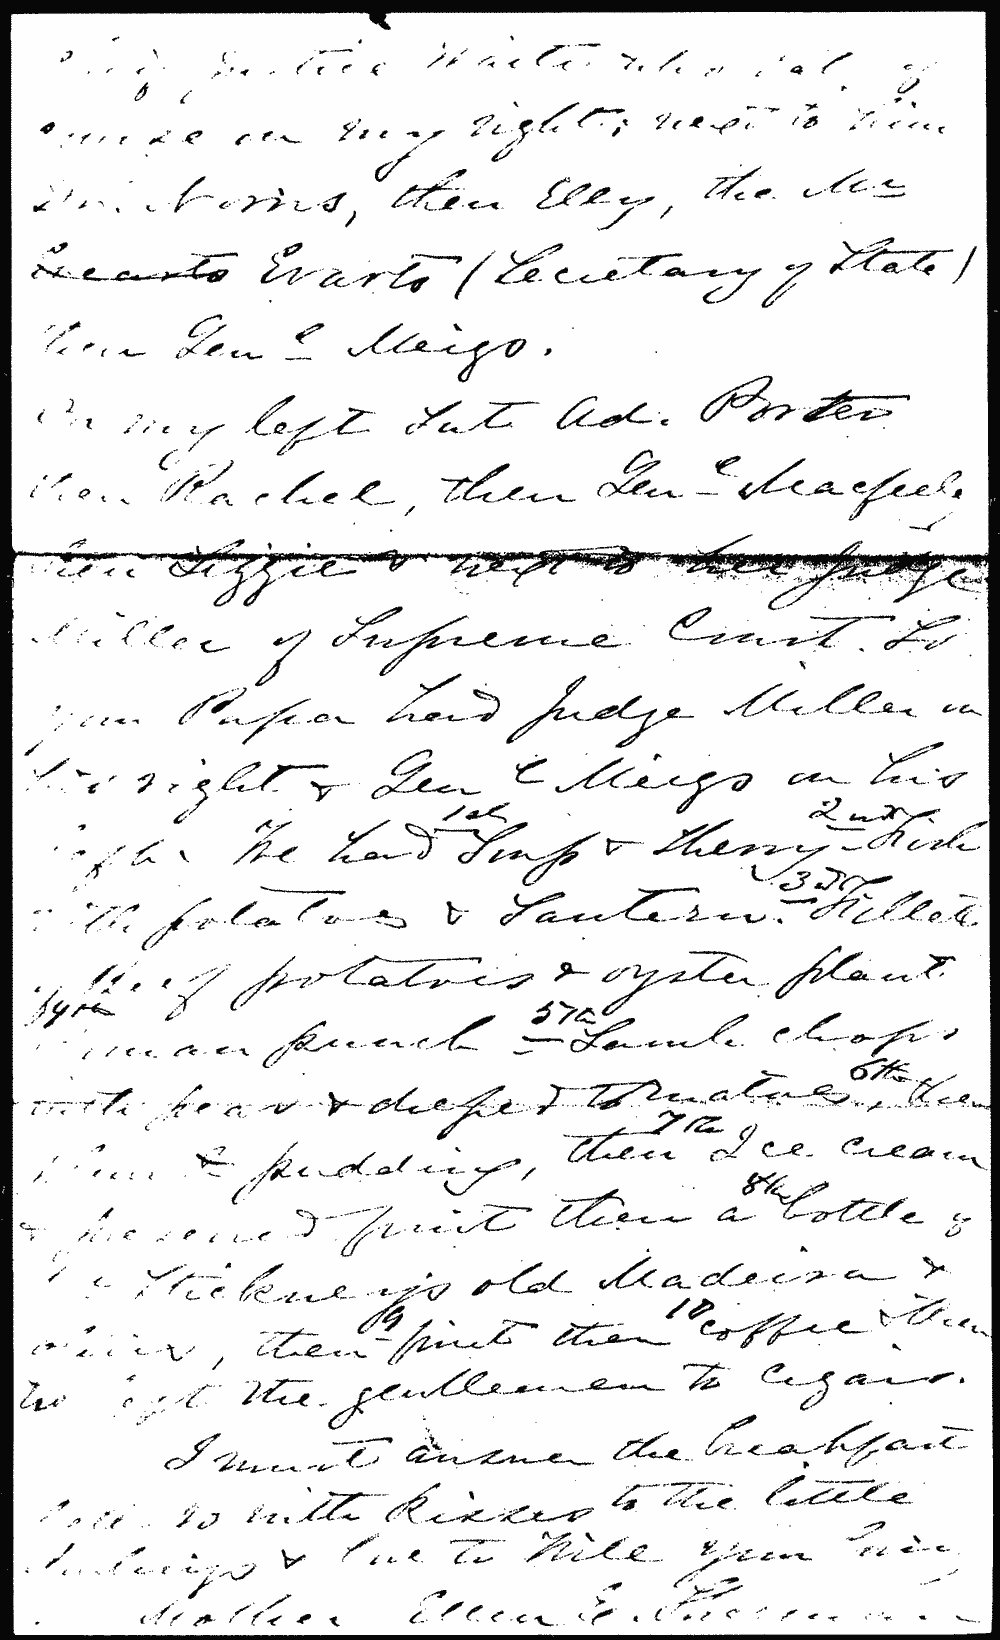 Chief Justice Waite who sat, of
course on my right; next to him
Dr. Norris, then Elly, the Mr
Evarts Evarts (Secretary of State)
then Genl Meigs.
On my left sat Ad. Porter
then Rachel, then Genl Macfeely
then Lizzie & next to her Judge
Miller of Supreme Court. So
your Papa had Judge Miller on
his right & Genl Meigs on his
left. We had 1st Soup & sherry - 2nd Fish
with potatoes & Sautern. 3rd Fillet
of Beef potatoes & oyster plant
4th Roman punch 5th Lamb chops
with peas & tomatoes, 6th then
plum pudding, then 7th Ice cream
& preserved fruit then a 8th bottle of
Stickney's old Madeira &
, then 9 fruit then 10 coffee & then
we left the gentlemen to cigars.
I must answer the breakfast
bell so with kisses to the little
darlings & love to Will your loving
Mother Ellen E. Sherman